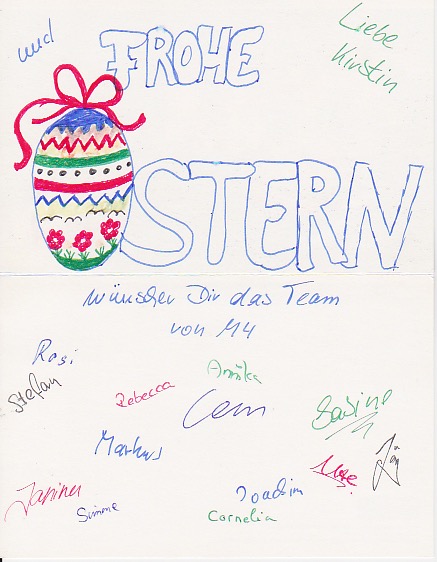 Liebe
Kirstin
und
FROHE
OSTERN
wünschen Dir das Team
von M4
Rosi
Stefan
Annika
Rebecca
Cem
Sabine
Markus
Janina
Simone
Joachim
Cornelia